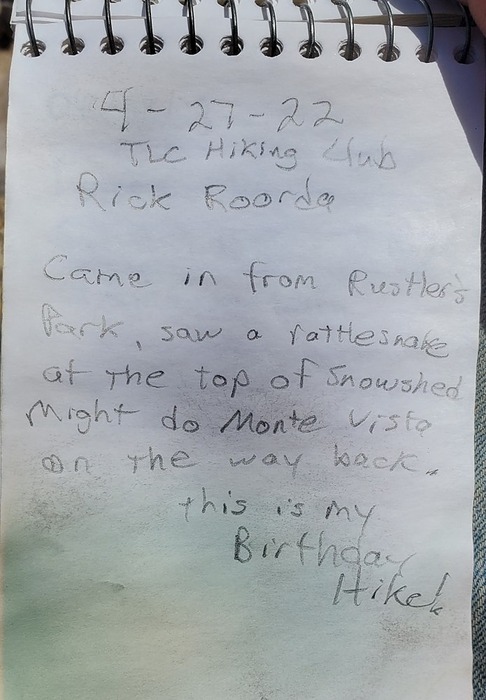 4-27-22
TLC Hiking Club
Rick Roorda
Came in from Rustler's
Park, saw a rattlesnake
at the top of Snowshed
Might do Monte Vista
on the way back.
this is my
Birthday
Hike!